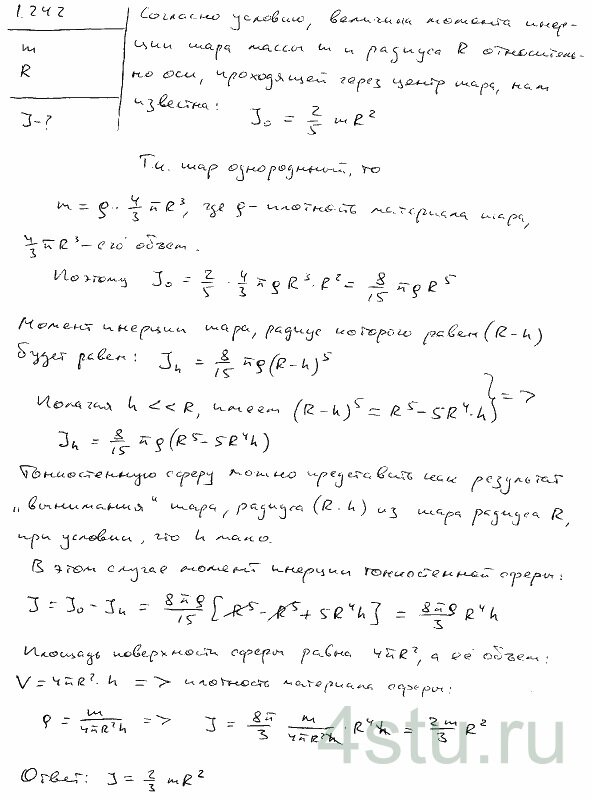 1.242
m
R
J-?
Согласно условию, величина момента инер-
ции шара массы m и радиуса R относитель-
но оси, проходящей через центр шара, нам
известна: J₀ = 2/5 mR²
Т.к. шар однородный, то
m = ρ · 4/3 πR³, где ρ - плотность материала шара,
4/3 πR³ - его объем.
Поэтому J₀ = 2/5 · 4/3 πρR³·R² = 8/15 πρR⁵
Момент инерции шара, радиус которого равен (R-h)
будет равен: Jₕ = 8/15 πρ(R-h)⁵
Полагая h << R, имеем (R-h)⁵ = R⁵ - 5R⁴·h } =>
Jₕ = 8/15 πρ(R⁵-5R⁴h)
Тонкостенную сферу можно представить как результат
„вынимания“ шара, радиуса (R-h) из шара радиуса R,
при условии, что h мало.
В этом случае момент инерции тонкостенной сферы:
J = J₀ - Jₕ = 8πρ/15 [R⁵ - R⁵ + 5R⁴h] = 8πρ/3 R⁴h
Площадь поверхности сферы равна 4πR², а её объем:
V = 4πR²·h => плотность материала сферы:
ρ = m/4πR²h => J = 8π/3 m/4πR²h · R⁴h = 2m/3 R²
4stu.ru
Ответ: J = 2/3 mR²